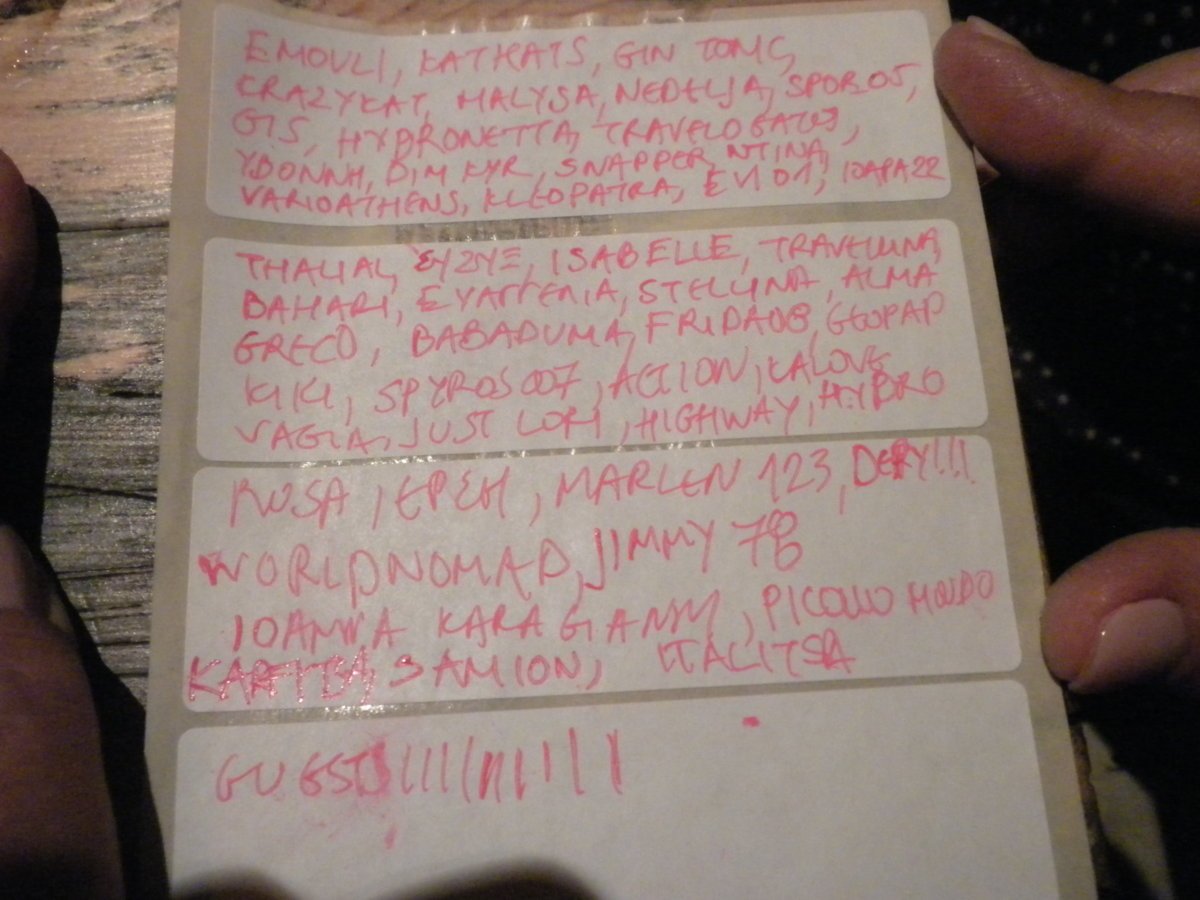 EMOVLI, KATKATS, GIN TONIC,
CRAZYKAT, MALYSA, NEDELJA, SPOROS,
GIS, HYDRONETTA, TRAVELOGATOS,
YDONNH, DIM KYR, SNAPPER, NTINA,
VARIOATHENS, KLEOPATRA, EVI D1, IOAPA22
THALIAL, ISABELLE, TRAVELLINA,
BAHARI, STELLINA, ALMA
GRECO, BABADUMA, FRIDA08, GEOPAP
KIKI, SPYROS007, ACCION, KALOVE
VAGIA, JUST LORI, HIGHWAY, HYDRO
ROSA, EPEH, MARLEN 123, DEPY!!!
WORLDNOMAD, JIMMY 78
IOANNA KARAGIANNH, PICOLLO MONDO
SAMION, ITALITSA
GUESTS